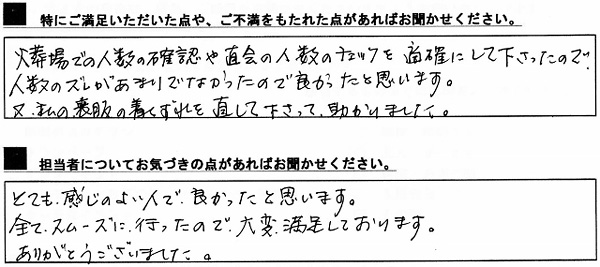 ■ 特にご満足いただいた点や、ご不満をもたれた点があればお聞かせください。
火葬場での人数の確認や直会の人数のチェックを適確にして下さったので、
人数のズレがあまりでなかったので良かったと思います。
又、私の喪服の着くずれを直して下さって、助かりました。
■ 担当者についてお気づきの点があればお聞かせください。
とても、感じのよい人で、良かったと思います。
全て、スムーズに、行ったので、大変、満足しております。
ありがとうございました。